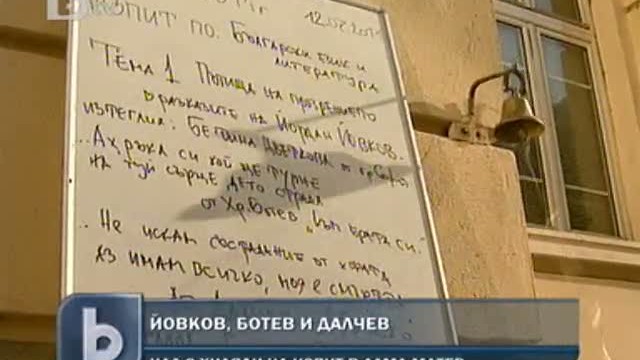 bTV
ИЗПИТ ПО: БЪЛГАРСКИ ЕЗИК И
ЛИТЕРАТУРА
ТЕМА 1 ПЪТИЩА НА ПРОГЛЕЖДАНЕТО
В РАЗКАЗИТЕ НА ЙОРДАН ЙОВКОВ.
ИЗТЕГЛИЛ: ЦВЕТКОВА ОТ ГР.
.. АХ, РЪКА СИ КОЙ ЩЕ ТУРНЕ
НА ТУЙ СЪРЦЕ ДЕТО СТРАДА
ОТ ХР. БОТЕВ „КЪМ БРАТА СИ"
.. НЕ ИСКАМ СЪСТРАДАНИЕ ОТ ХОРАТА
АЗ ИМАМ ВСИЧКО, МОЯ Е СМЪРТТА
b
ЙОВКОВ, БОТЕВ И ДАЛЧЕВ